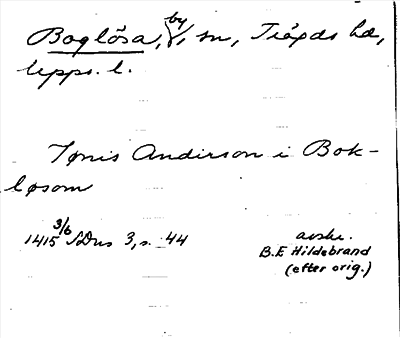 Boglösa, by, sn, Trögds hd,
Upps. l.
Iønis Andirson i Bok-
løsom
1415 3/6 SDns 3, s. 44
avskr.
B.E Hildebrand
(efter orig.)